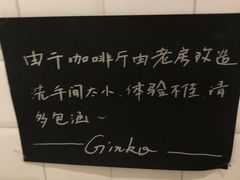 由于咖啡厅由老房改造
洗手间太小、体验不佳,请
多包涵~
——Ginko——